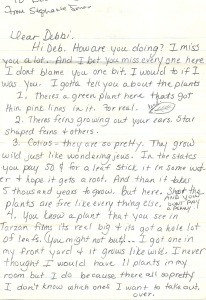 To
From Stephanie
Dear Debbi.
Hi Deb. How are you doing? I miss
you a lot. And I bet you miss every one here
I dont blame you one bit. I would to if I
was you. I gotta tell you about the plants
1. Theres a green plant here thats got
thin pink lines in it. For real.
2. Theres ferns growing out your ears. Star
shaped ferns & others.
3. - they are so pretty. They grow
wild just like wondering jews. In the states
you pay 50¢ for a leaf stick it in some wat-
er & hope it gets a root. And than it takes
5 thousand years to grow. But here. Shoot the
plants are free like every thing else. AND YOU DONT PAY A PENNY
4. You know a plant that you see in
Tarzan films its real big & its got a hole lot
of leafs. (You might not but)... I got one in
my front yard & it grows like wild. I never
thought I would have 11 plants in my
room but I do because there all so pretty
I don't know which ones I want to take out.
over.